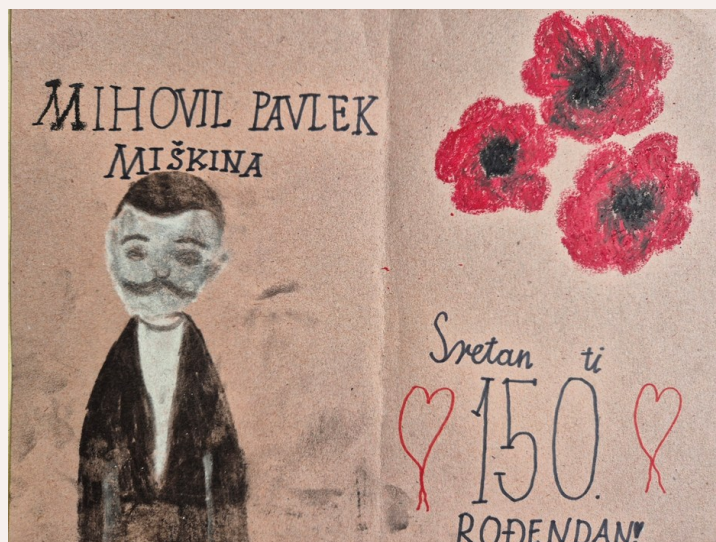 MIHOVIL PAVLEK
MIŠKINA
Sretan ti
150.
ROĐENDAN!